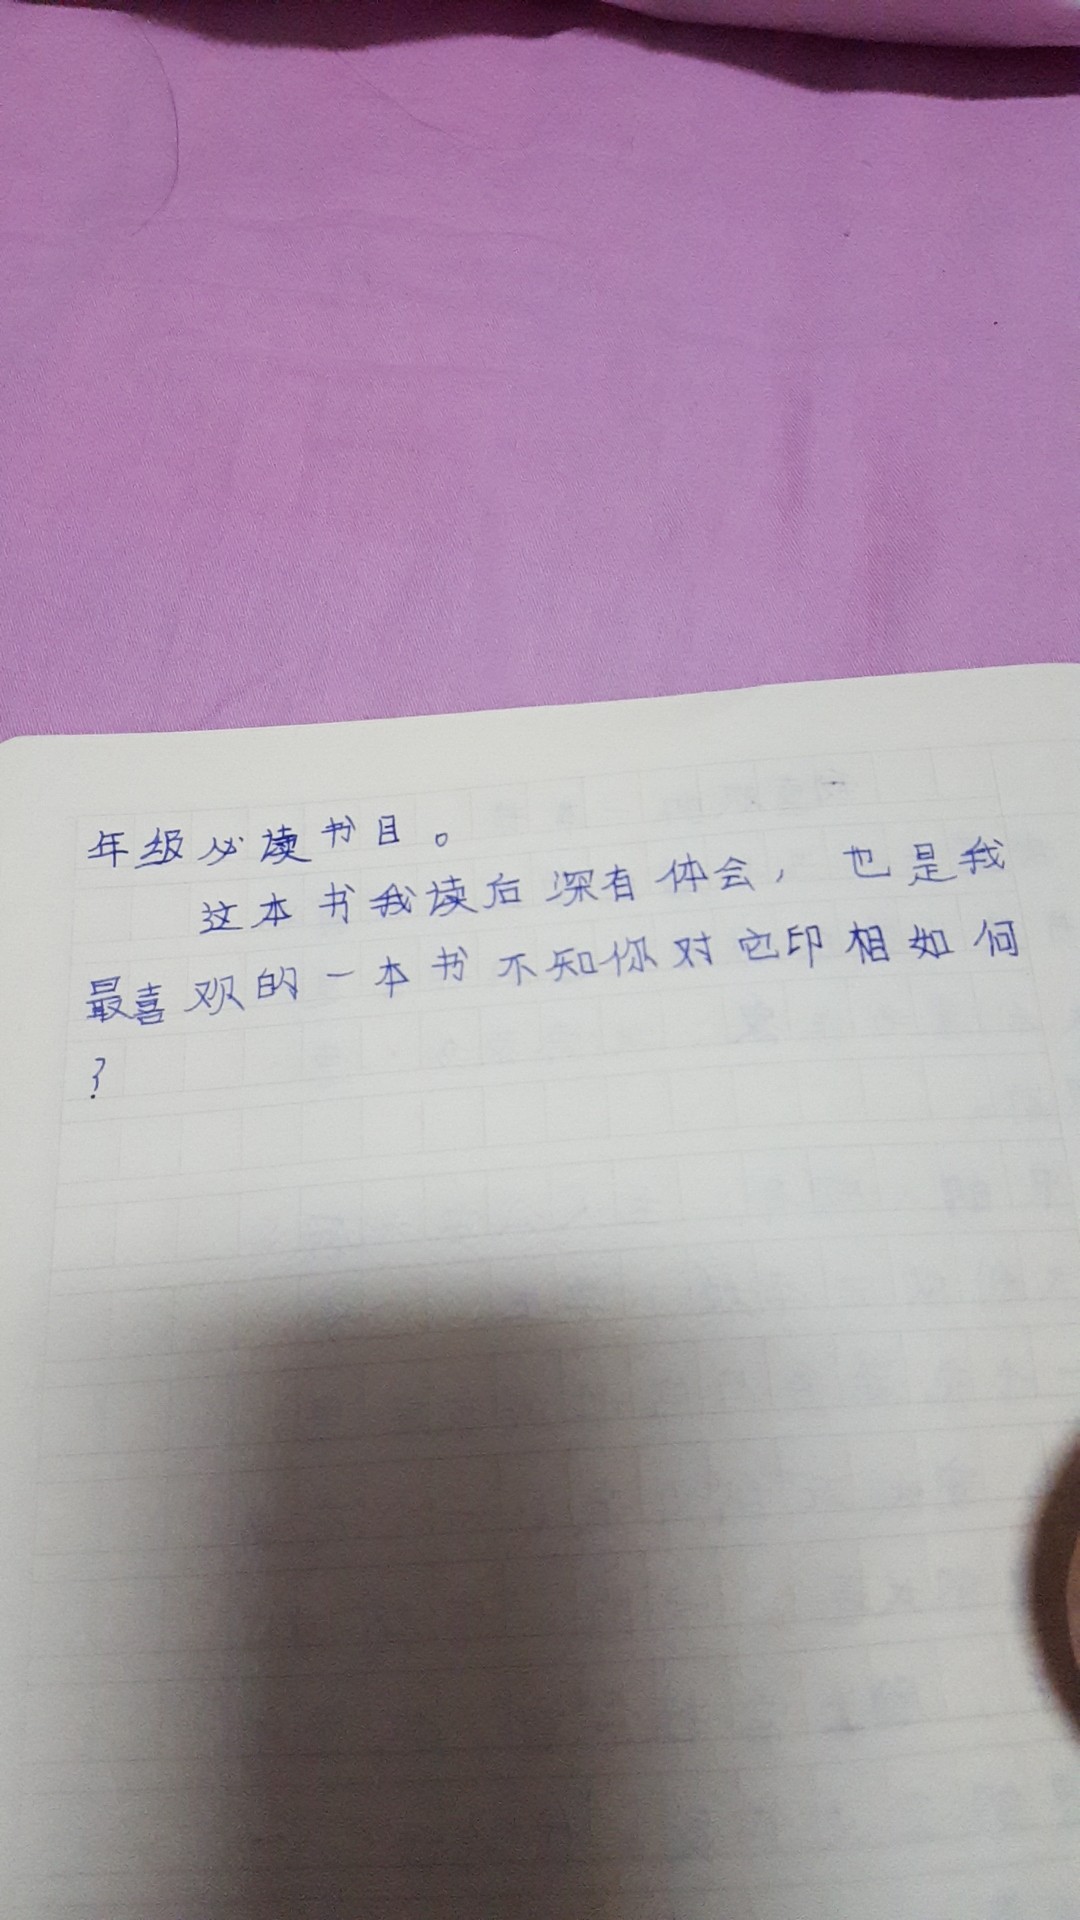 年级必读书目。
这本书我读后深有体会，也是我
最喜观的一本书不知你对它印相如何
？